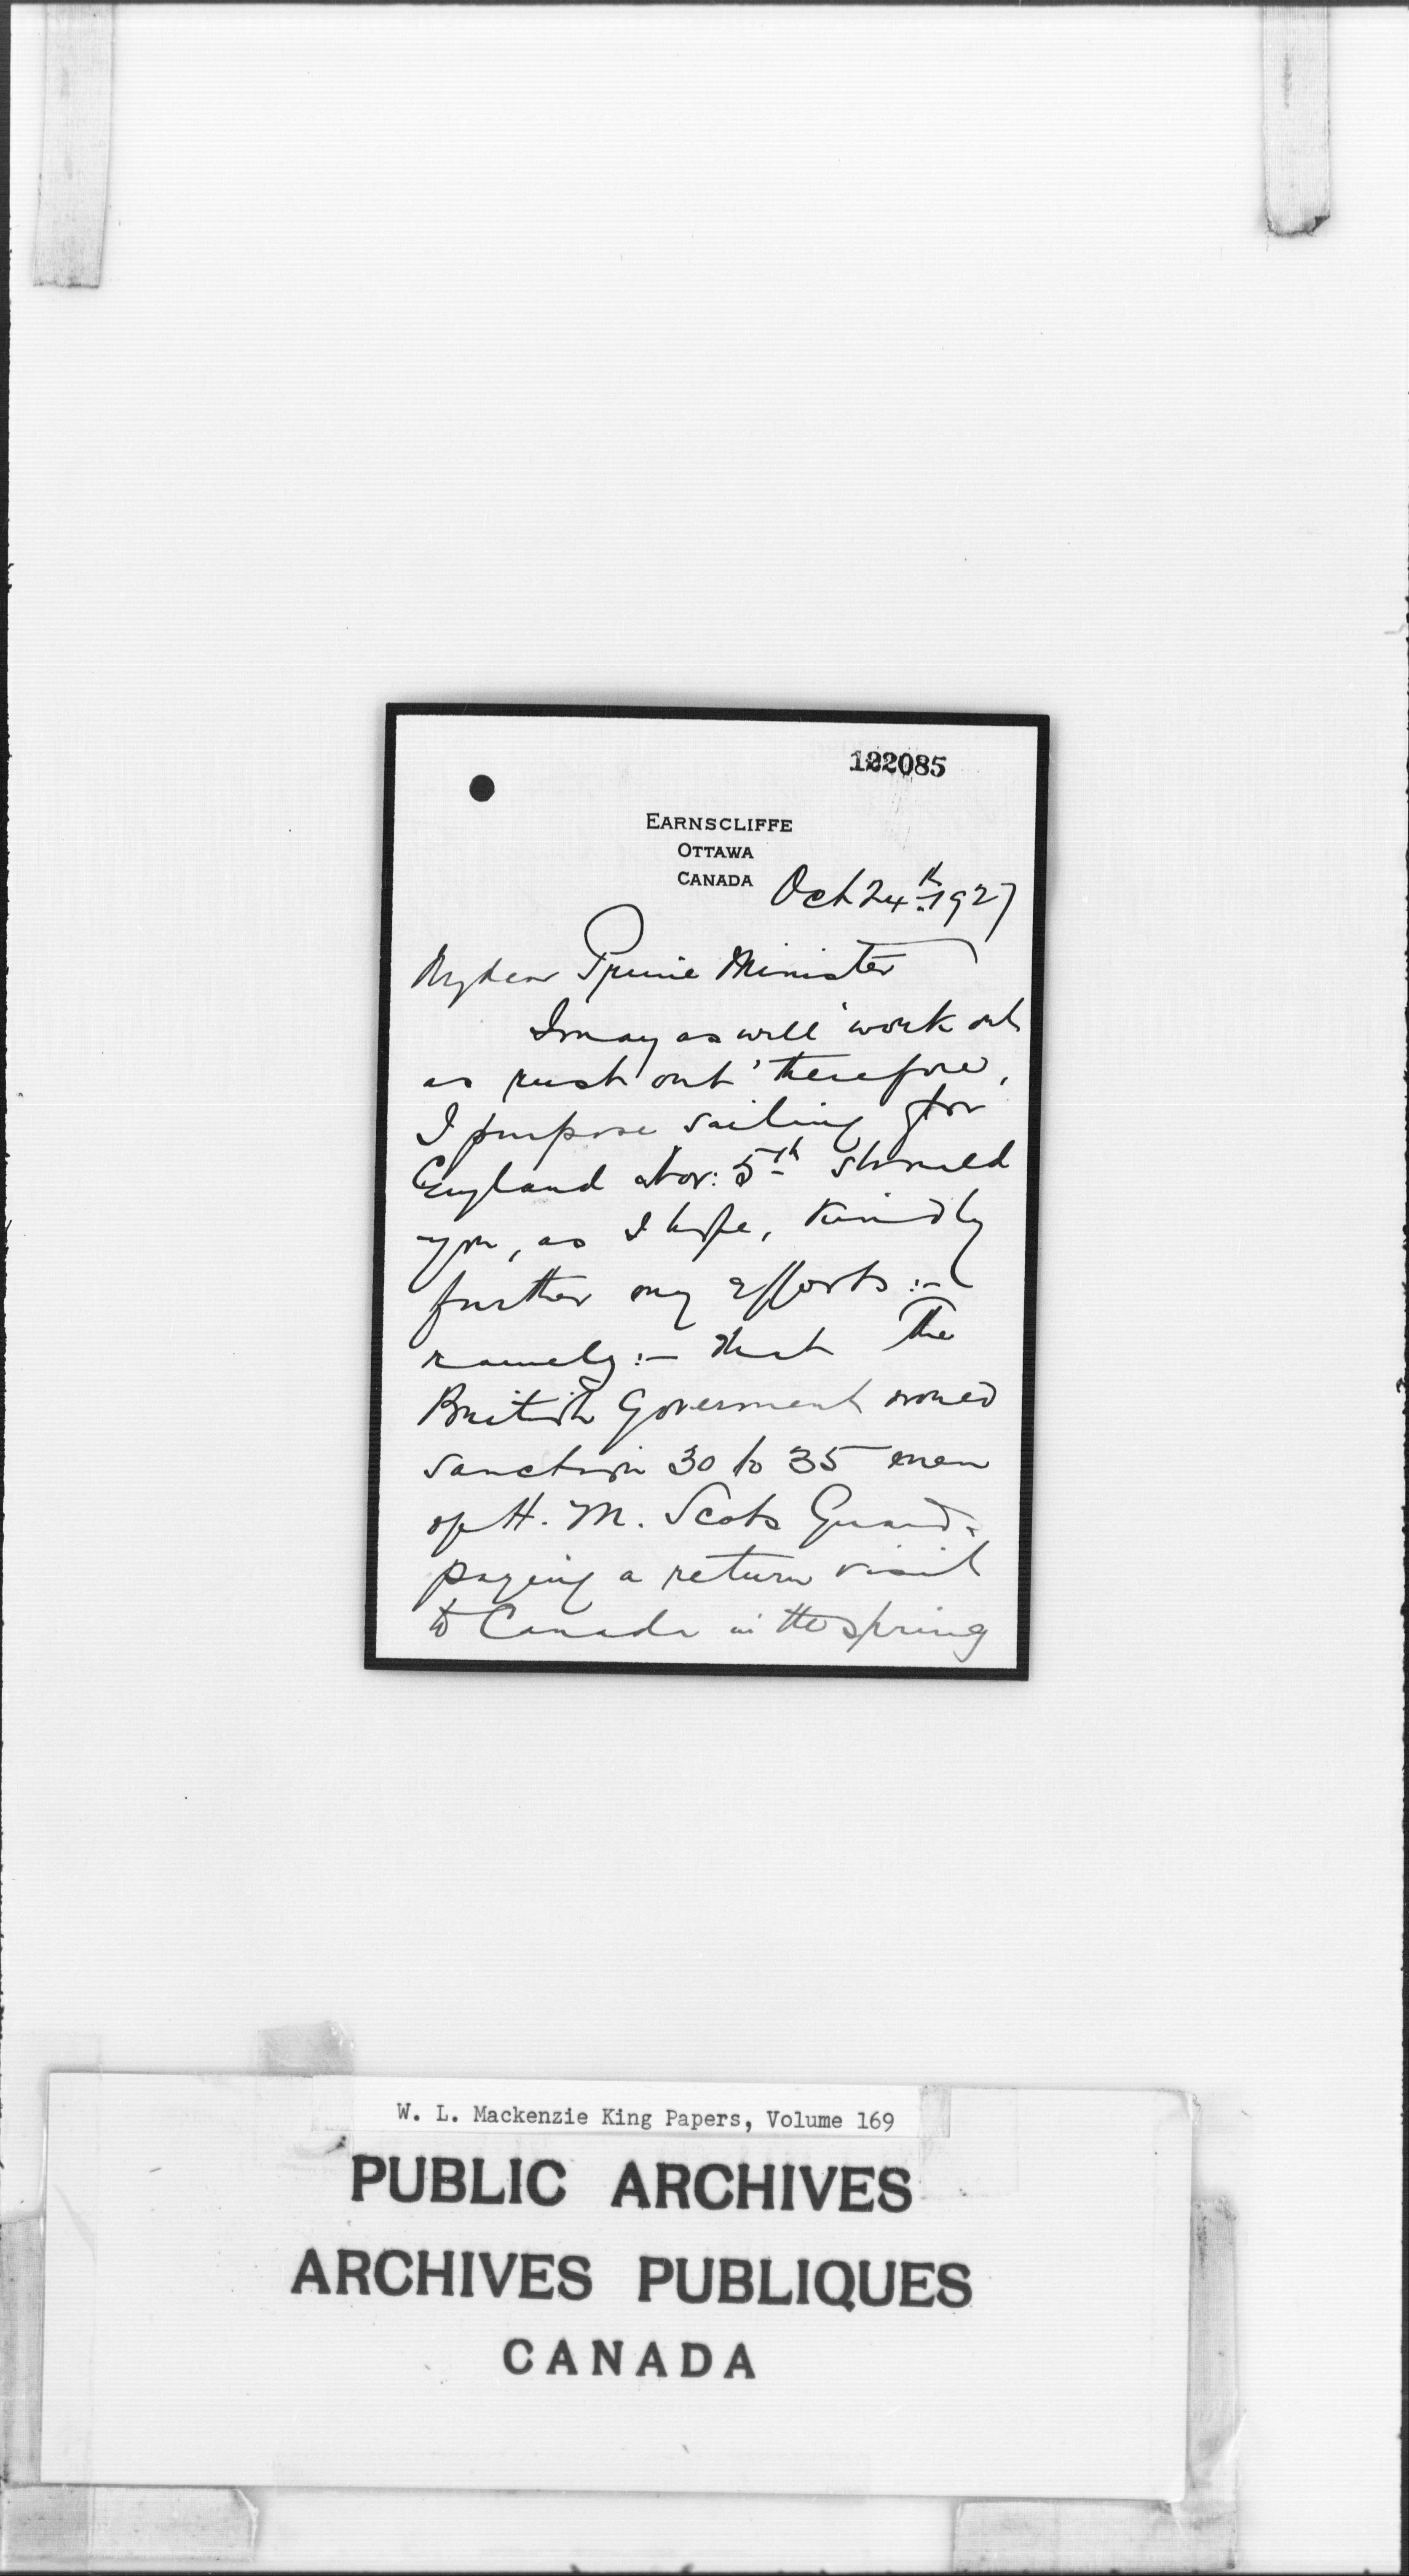 122085
EARNSCLIFFE
OTTAWA
CANADA
Oct 24th. 1927
My dear Prime Minister
I may as well 'work out
as rust out' therefore,
I purpose sailing for
England Nov: 5th should
you, as I hope, kindly
further my efforts :-
namely :- that The
British Goverment would
sanction 30 to 35 men
of H. M. Scots Guards
paying a return visit
to Canada in the spring
W. L. Mackenzie King Papers, Volume 169
PUBLIC ARCHIVES
ARCHIVES PUBLIQUES
CANADA